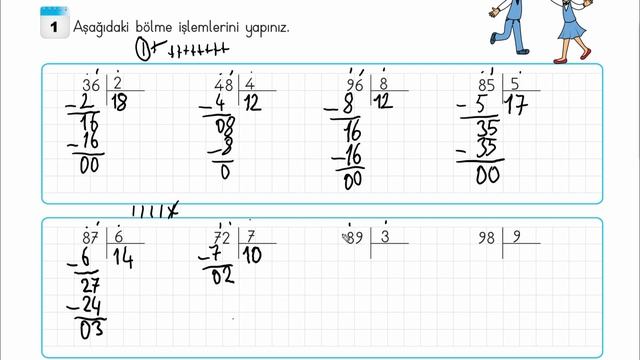 1 Aşağıdaki bölme işlemlerini yapınız.
36 2 48 4 96 8 85 5
- 2 18 - 4 12 - 8 12 - 5 17
16 08 16 35
- 16 - 8 - 16 - 35
00 0 00 00
87 6 72 7 89 3 98 9
- 6 14 - 7 10
27 02
- 24
03